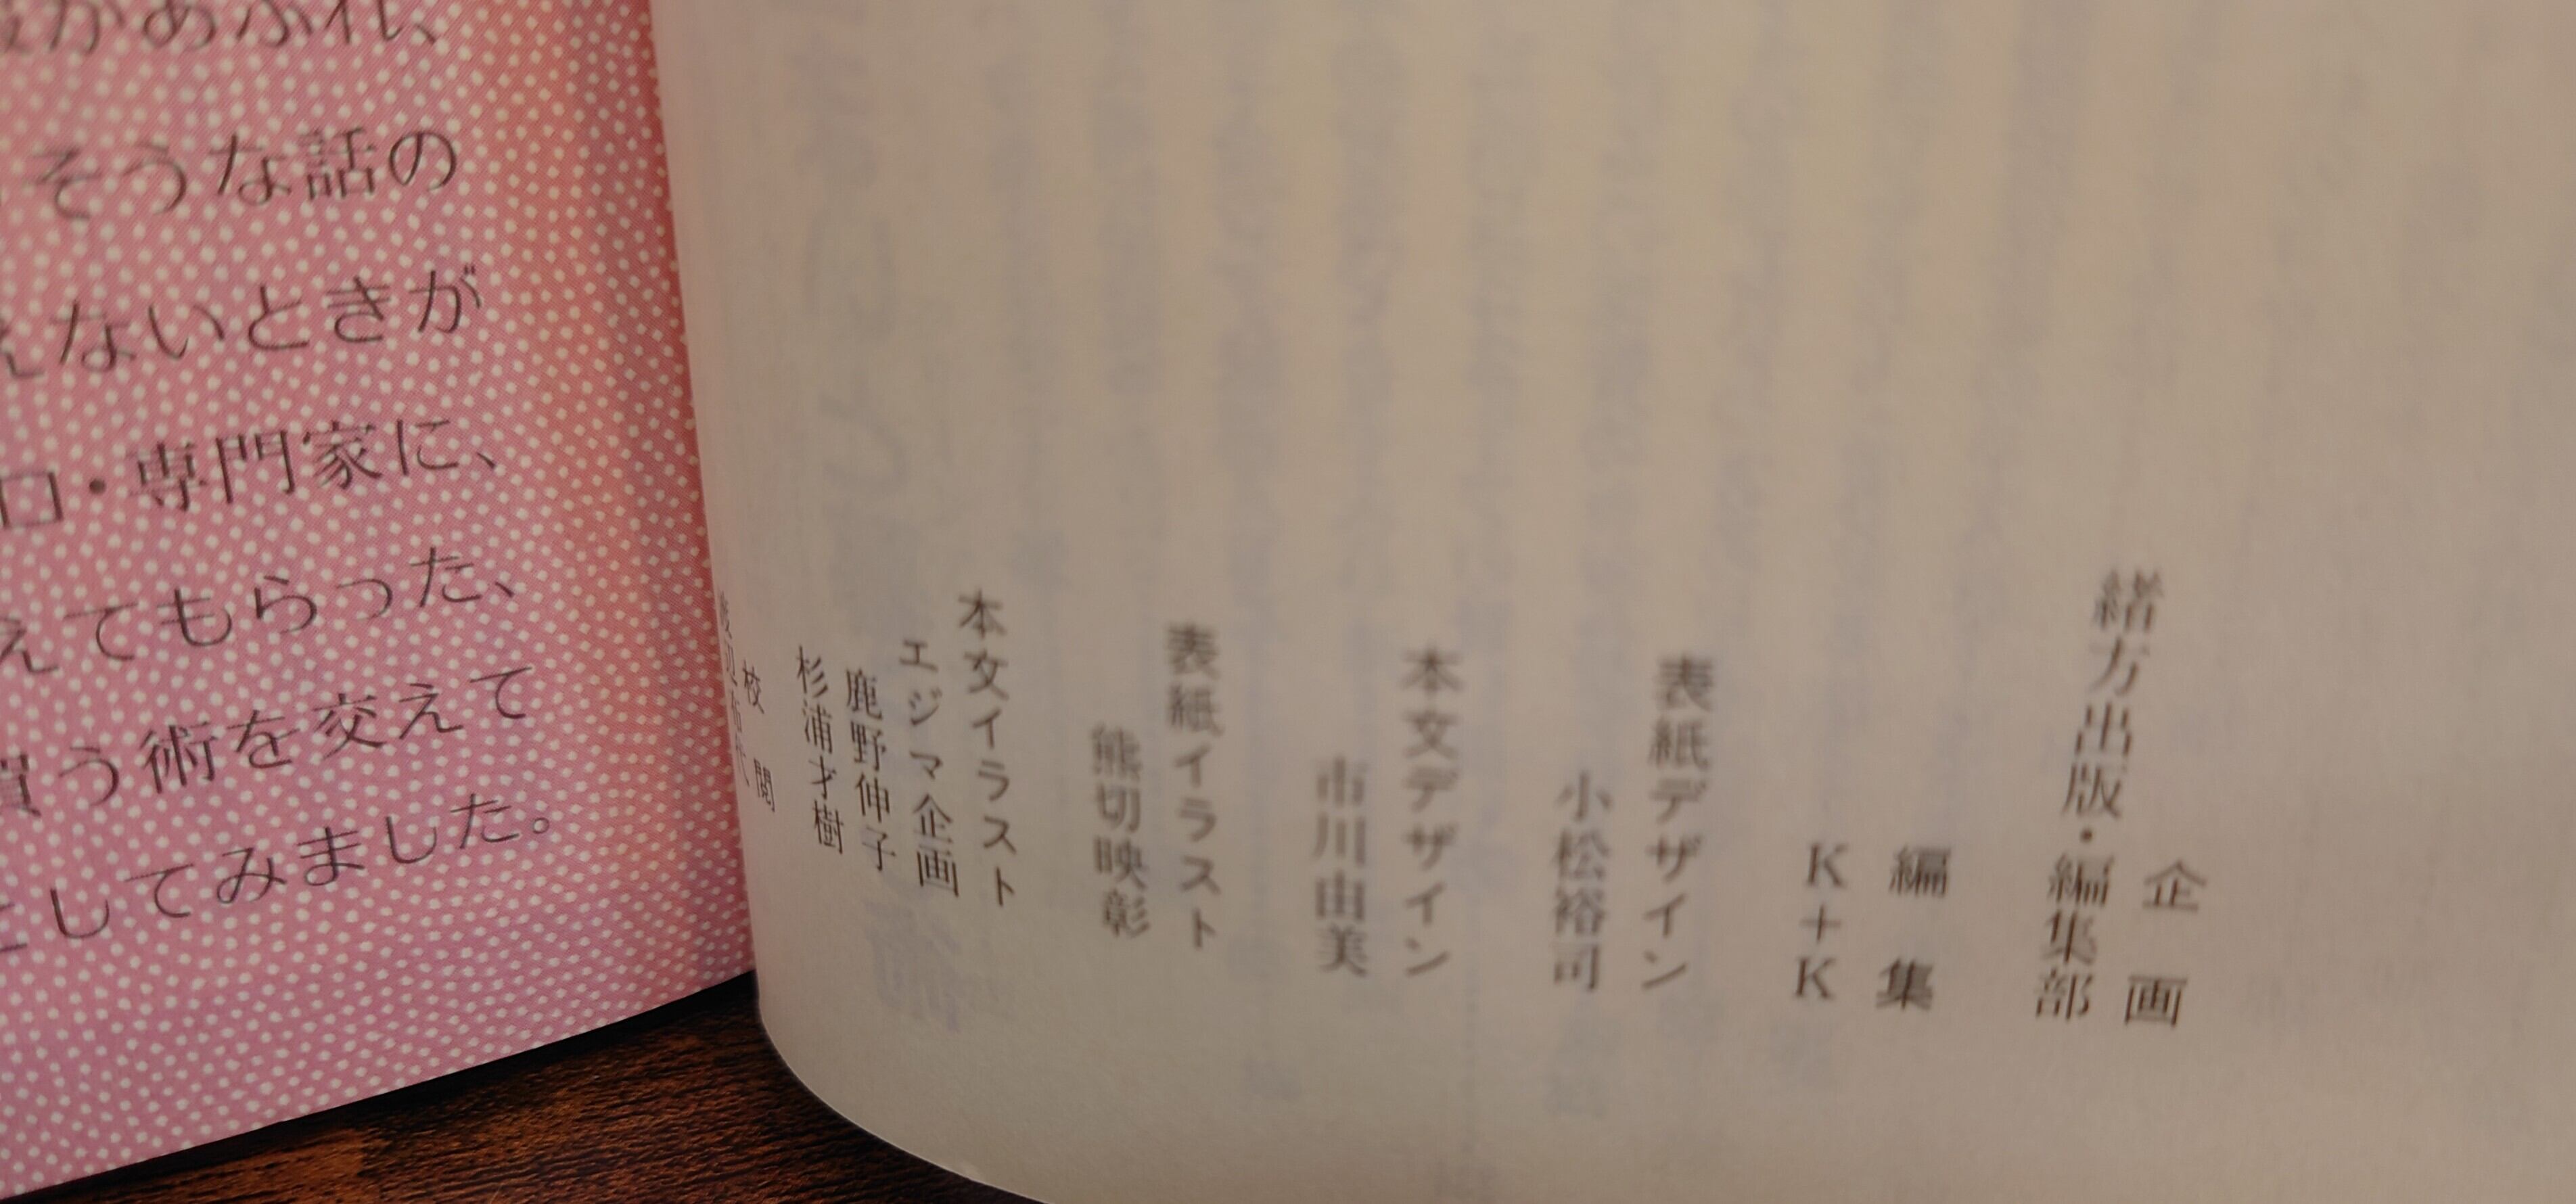 があふれ、
そうな話の
えないときが
ロ・専門家に、
えてもらった、
買う術を交えて
としてみました。
企画
緒方出版・編集部
編集
K+K
表紙デザイン
小松裕司
本文デザイン
市川由美
表紙イラスト
熊切映彰
本文イラスト
エジマ企画
鹿野伸子
杉浦才樹
校閲